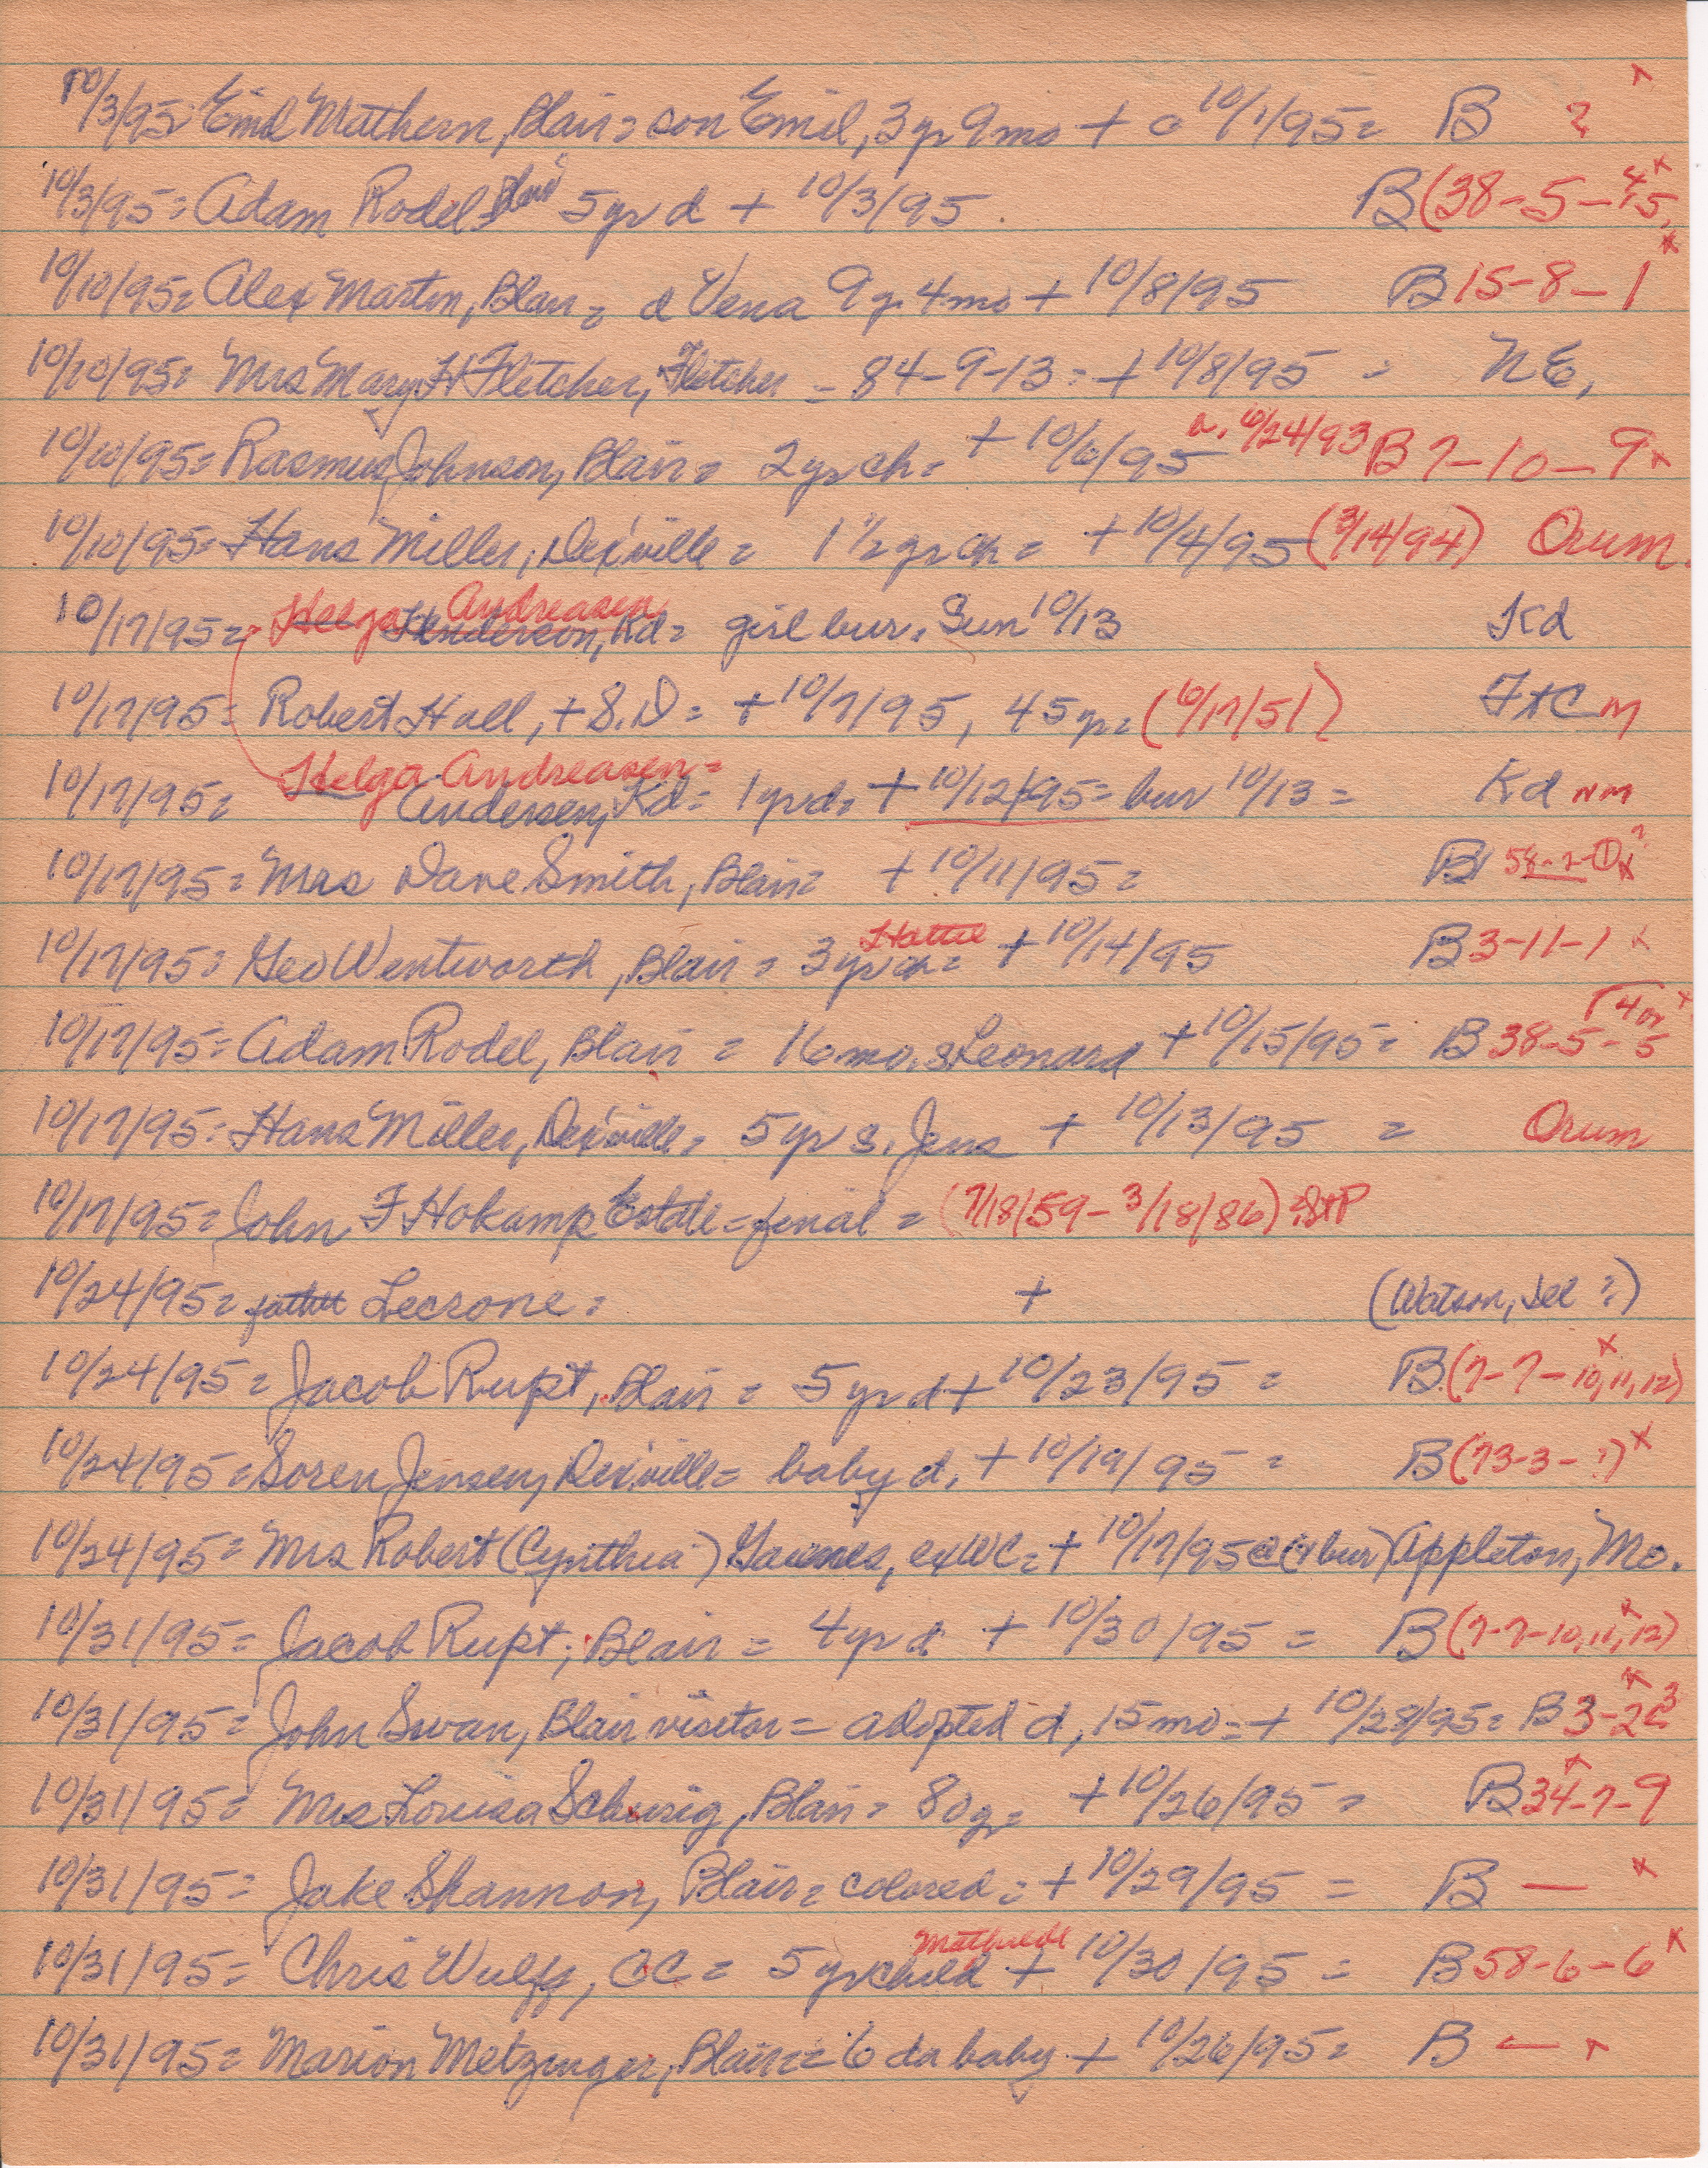 10/3/95= Emil Mathern, Blair= son Emil, 3 yr 9 mo + c 10/1/95= B ?
10/3/95= Adam Rodel Blair 5 yr d + 10/3/95 B (38-5-4,5,
10/10/95= Alex Marton, Blair= d Vena 9 y. 4 mo + 10/8/95 B 15-8-1
10/10/95= Mrs Mary H Fletcher, Fletcher - 84-9-13= + 10/8/95 = NE,
10/10/95= Rasmus Johnson, Blair= 2 yr ch= + 10/6/95 B 7-10-9
10/10/95= Hans Miller, Dex'ville= 1 1/2 yr ch= + 10/4/95 (3/14/94) Orum.
10/17/95= Helga Andreasen Henderson, Kd= girl bur. Sun 10/13 Kd
10/17/95= Robert Hall, + S.D= + 10/7/95, 45 yr= (6/17/51) FtC M
10/17/95= Helga Andreasen= Andersen, Kd= 1 yr d= + 10/12/95= bur 10/13= Kd NM
10/17/95= Mrs Dave Smith, Blair= + 10/11/95= B
10/17/95= Geo Wentworth, Blair= 3 yr ch= Hattie + 10/14/95 B 3-11-1 x
10/17/95= Adam Rodel, Blair = 16 mo. s Leonard + 10/15/95= B 38-5-5 (4 or
10/17/95= Hans Miller, Dex'ville= 5 yr s. Jens + 10/13/95 = Orum
10/17/95= John F Hokamp Estate=final = (7/18/59-3/18/86) =StP
10/24/95= father Lecrone= + (Watson, Del ?)
10/24/95= Jacob Rupt, Blair = 5 yr d + 10/23/95 = B (7-7-10,11,12) x
10/24/95= Soren Jensen, Dex'ville= baby d, + 10/19/95 = B (73-3-?) x
10/24/95= Mrs Robert (Cynthia) Gaines, exWC= + 10/17/95 @ (& bur) Appleton, Mo.
10/31/95= Jacob Rupt, Blair = 4 yr d + 10/30/95 = B (7-7-10,11,12) x
10/31/95= John Swan, Blair visitor= adopted d, 15 mo= + 10/28/95= B 3-2
10/31/95= Mrs Louisa Schurig, Blair= 80 y= + 10/26/95 = B 34-7-9 x
10/31/95= Jake Shannon, Blair= colored= + 10/29/95 = B — x
10/31/95= Chris Wulff, CC= 5 yr child Mathilde + 10/30/95 = B 58-6-6 x
10/31/95= Marion Metzinger, Blair= 6 da baby + 10/26/95= B —